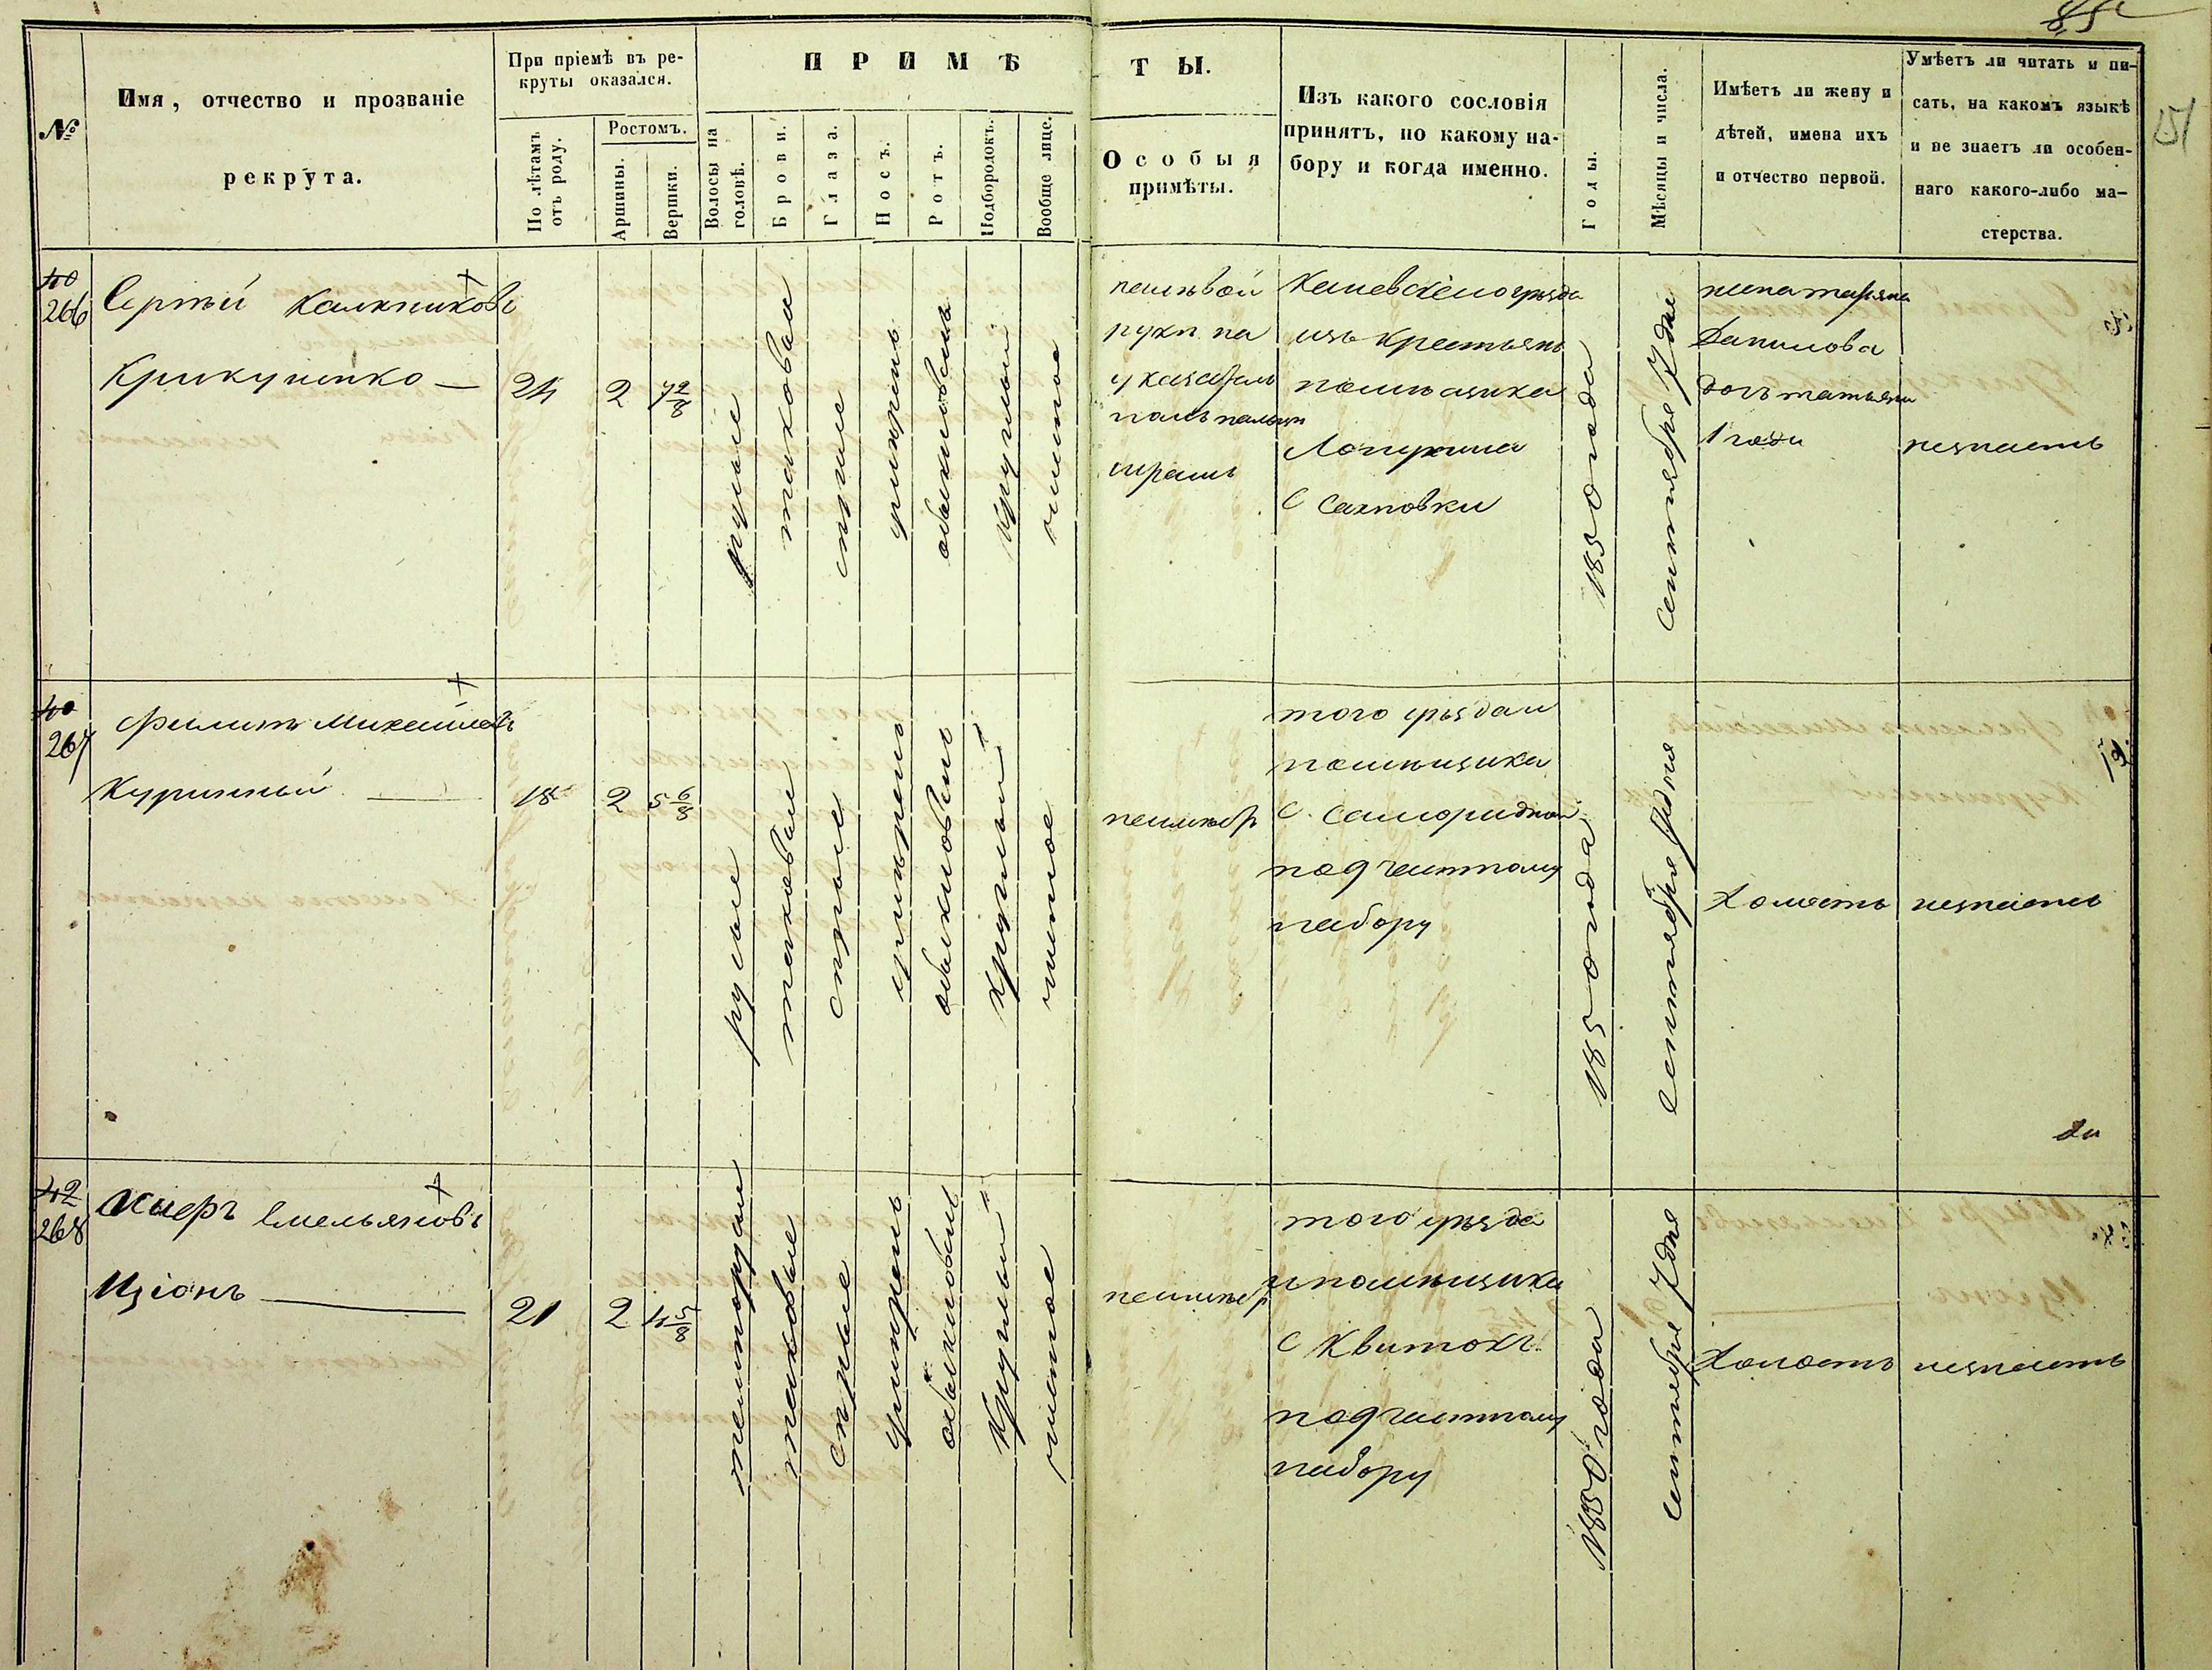 85
№
Имя, отчество и прозваніе
рекрута.
При пріемѣ въ ре-
круты оказался.
По лѣтамъ
отъ роду.
Ростомъ.
Аршины.
Вершки.
ПРИМѢ
ТЫ.
Волосы на
головѣ.
Брови.
Глаза.
Носъ.
Ротъ.
Подбородокъ.
Вообще лице.
Особыя
примѣты.
Изъ какого сословія
принятъ, по какому на-
бору и когда именно.
Годы.
Мѣсяцы и числа.
Имѣетъ ли жену и
дѣтей, имена ихъ
и отчество первой.
Умѣетъ ли читать и пи-
сать, на какомъ языкѣ
и не знаетъ ли особен-
наго какого-либо ма-
стерства.
40
266
Сергѣй
Крикуненко
24
2
7 2/8
русые
таковыя
сѣрые
умѣренъ
обыкновенъ
круглый
чистое
на лѣвой
рукѣ на
указатель
номъ пальцѣ
шрамъ
Каневскаго уѣзда
изъ крестьянъ
помѣщика
Лопухина
С Сахновки
1850 года
Сентября 7 дня
жена
Данилова
дочь татьяна
1 года
незнаетъ
40
267
Филипъ Михайловъ
Куринный
18
2
5 6/8
русые
таковыя
сѣрые
умѣренъ
обыкновенъ
круглый
чистое
неимѣетъ
того уѣзда и
помѣщика
С. Самородни
по 9 частному
набору
1850 года
Сентября 7 дня
Холостъ
незнаетъ
42
268
Емельяновъ
Изіонъ
21
2
4 5/8
темнорусыя
таковые
сѣрые
умѣренъ
обыкновенъ
круглый
чистое
неимѣетъ
того уѣзда
и помѣщика
С Квитокъ
по 9 частному
набору
1850 года
Сентября 7 дня
Холостъ
незнаетъ